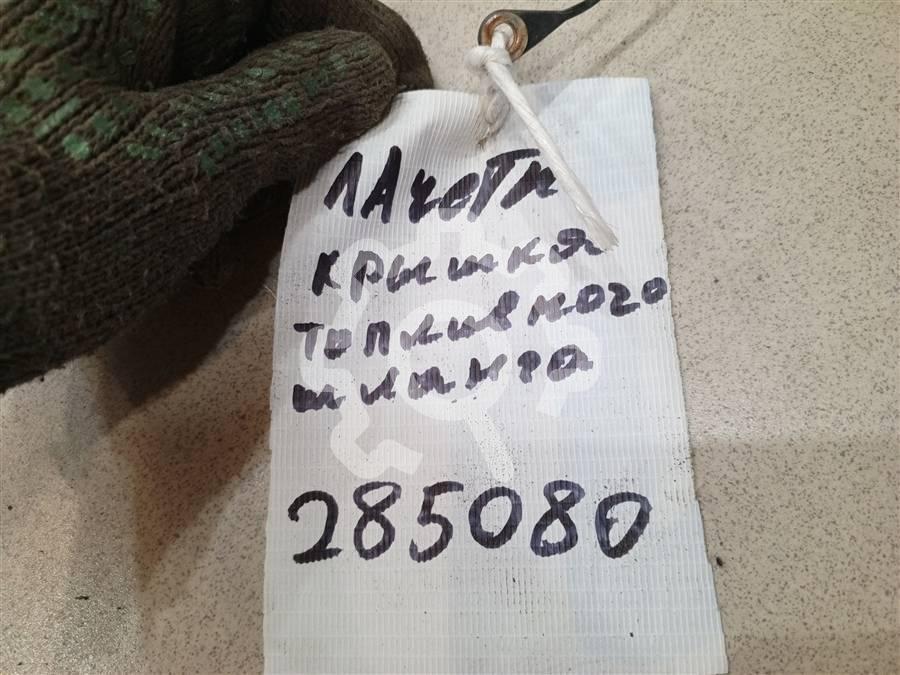 лАчеТи
крышка
топливного
шланга
285080